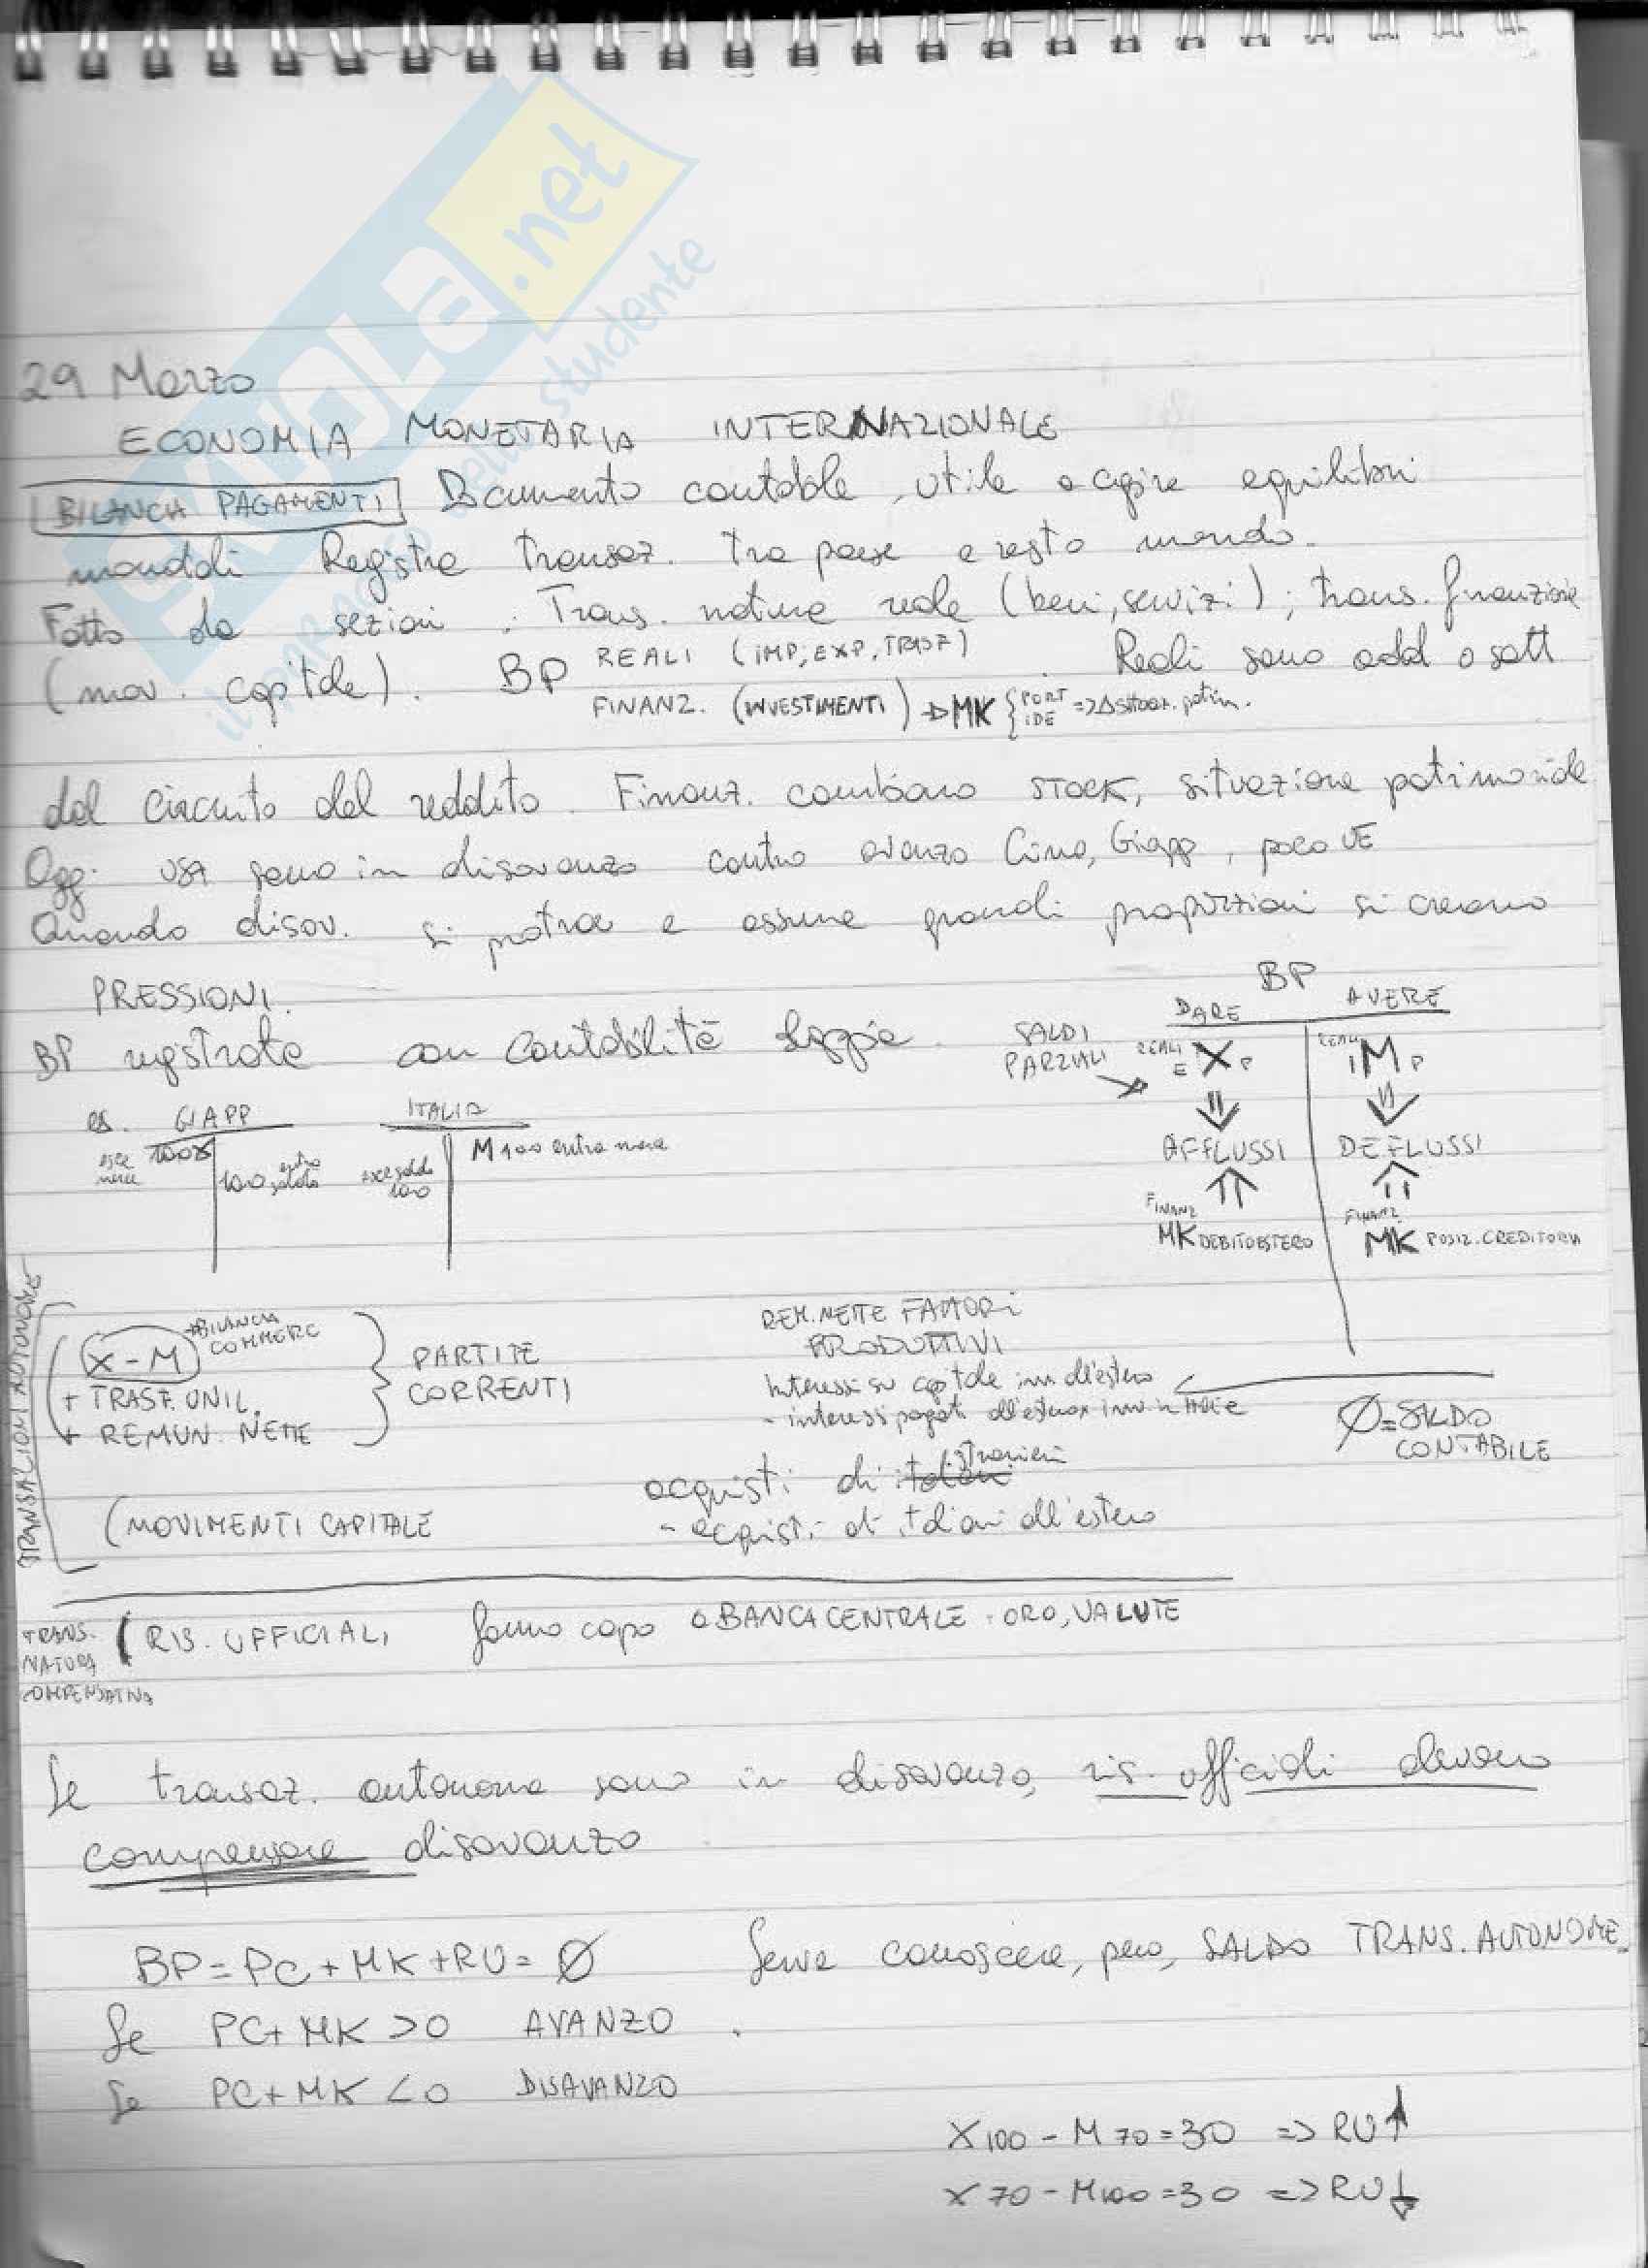 SKUOLA.net
il paradiso dello studente
29 Marzo
ECONOMIA MONETARIA INTERNAZIONALE
BILANCIA PAGAMENTI Documento contabile, utile a capire equilibri
mondiali Registra transaz. tra paese e resto mondo.
Fatto da sezioni: Trans. natura reale (beni, servizi); trans. finanziarie
(mov. capitale). BP REALI (IMP, EXP, TRASF) Reali sono add o sott
FINANZ. (INVESTIMENTI) => MK { PORT IDE => Δ situaz. patrim.
dal circuito del reddito. Finanz. cambiano STOCK, situazione patrimoniale
Oggi USA sono in disavanzo contro avanzo Cina, Giapp, poco UE
Quando disav. si protrae e assume grandi proporzioni si creano
PRESSIONI.
BP registrata con contabilità doppia.
SALDI PARZIALI
BP
DARE AVERE
REALI EXP REALI IMP
AFFLUSSI DEFLUSSI
FINANZ FINANZ
MK DEBITO ESTERO MK POSIZ. CREDITORIA
Ø = SALDO CONTABILE
es. GIAPP ITALIA
esce merce 100X 100 entra soldo esce soldo 100 M 100 entra merce
TRANSAZIONI AUTONOME
X-M → BILANCIA COMMERC
+ TRASF. UNIL.
+ REMUN. NETTE
PARTITE CORRENTI
REM. NETTE FATTORI
PRODUTTIVI
Interessi su capitale inv. all'estero
- interessi pagati all'estero x inv. in Italia
(MOVIMENTI CAPITALE acquisti di stranieri
- acquisti di italiani all'estero
TRANS. NATURA COMPENSATIVA
(RIS. UFFICIALI fanno capo a BANCA CENTRALE: ORO, VALUTE
Se transaz. autonome sono in disavanzo, ris. ufficiali devono
compensare disavanzo
BP = PC + MK + RU = Ø Serve conoscere, però, SALDO TRANS. AUTONOME.
Se PC + MK > 0 AVANZO
Se PC + MK < 0 DISAVANZO
X100 - M70 = 30 => RU↑
X70 - M100 = 30 => RU↓